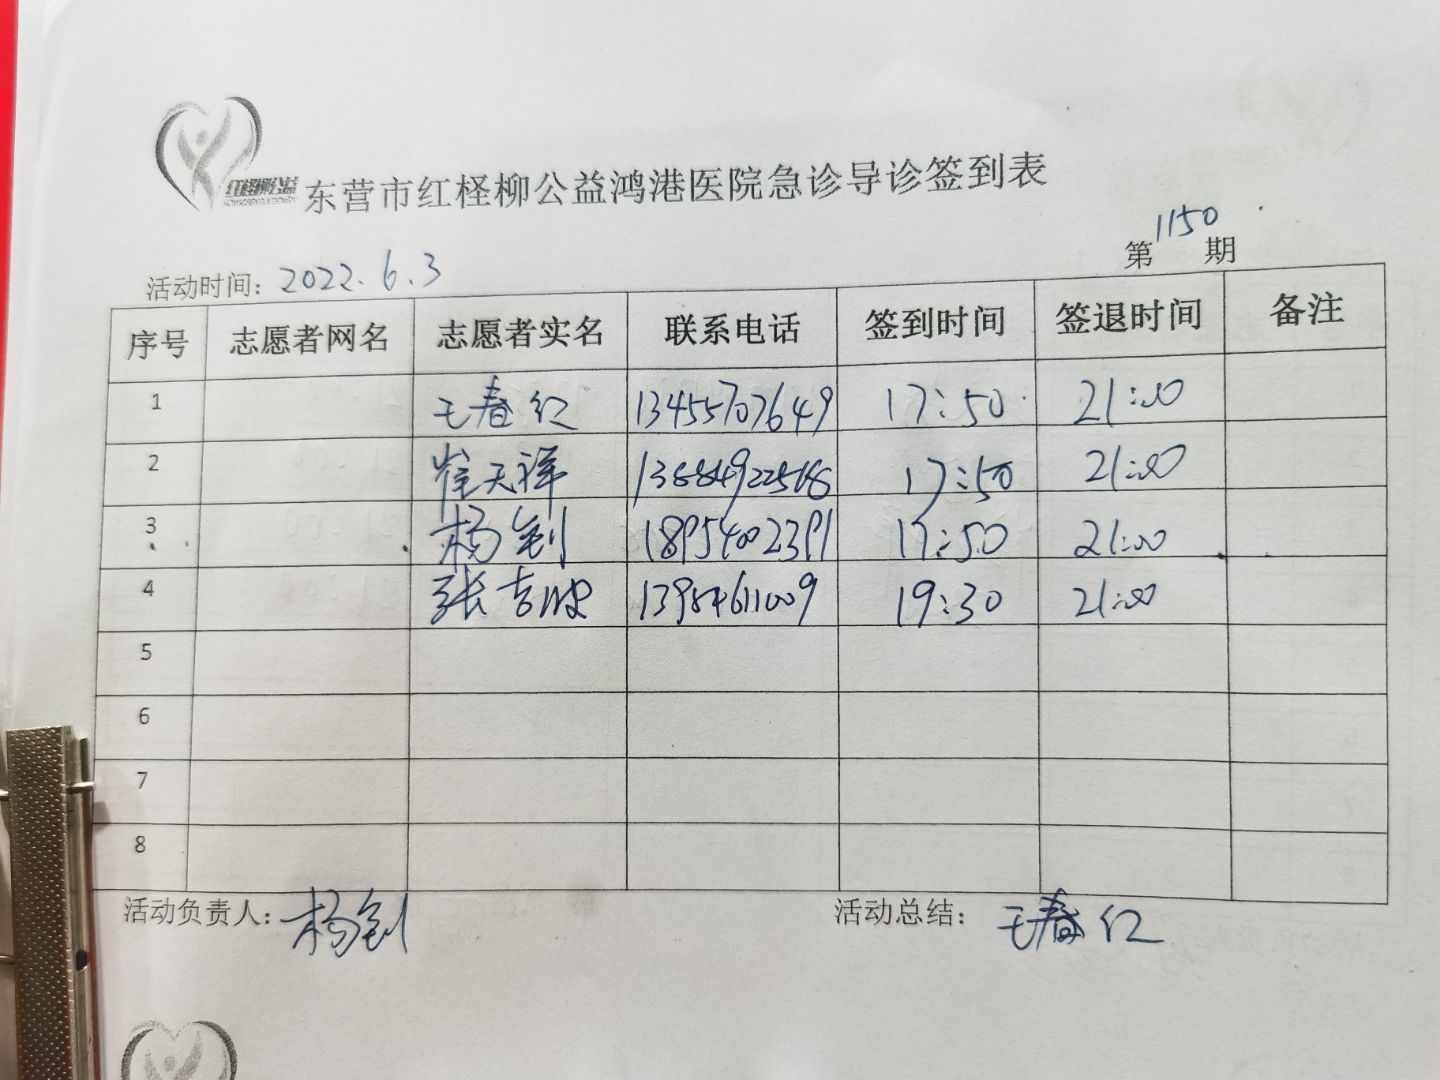 红柽柳公益
东营市红柽柳公益鸿港医院急诊导诊签到表
第1150期
活动时间：2022.6.3
序号 志愿者网名 志愿者实名 联系电话 签到时间 签退时间 备注
1 王春红 13455707649 17:50 21:00
2 崔天祥 17:50 21:00
3 杨钊 18954002391 17:50 21:00
4 张吉波 13954611009 19:30 21:00
5
6
7
8
活动负责人：杨钊 活动总结：王春红